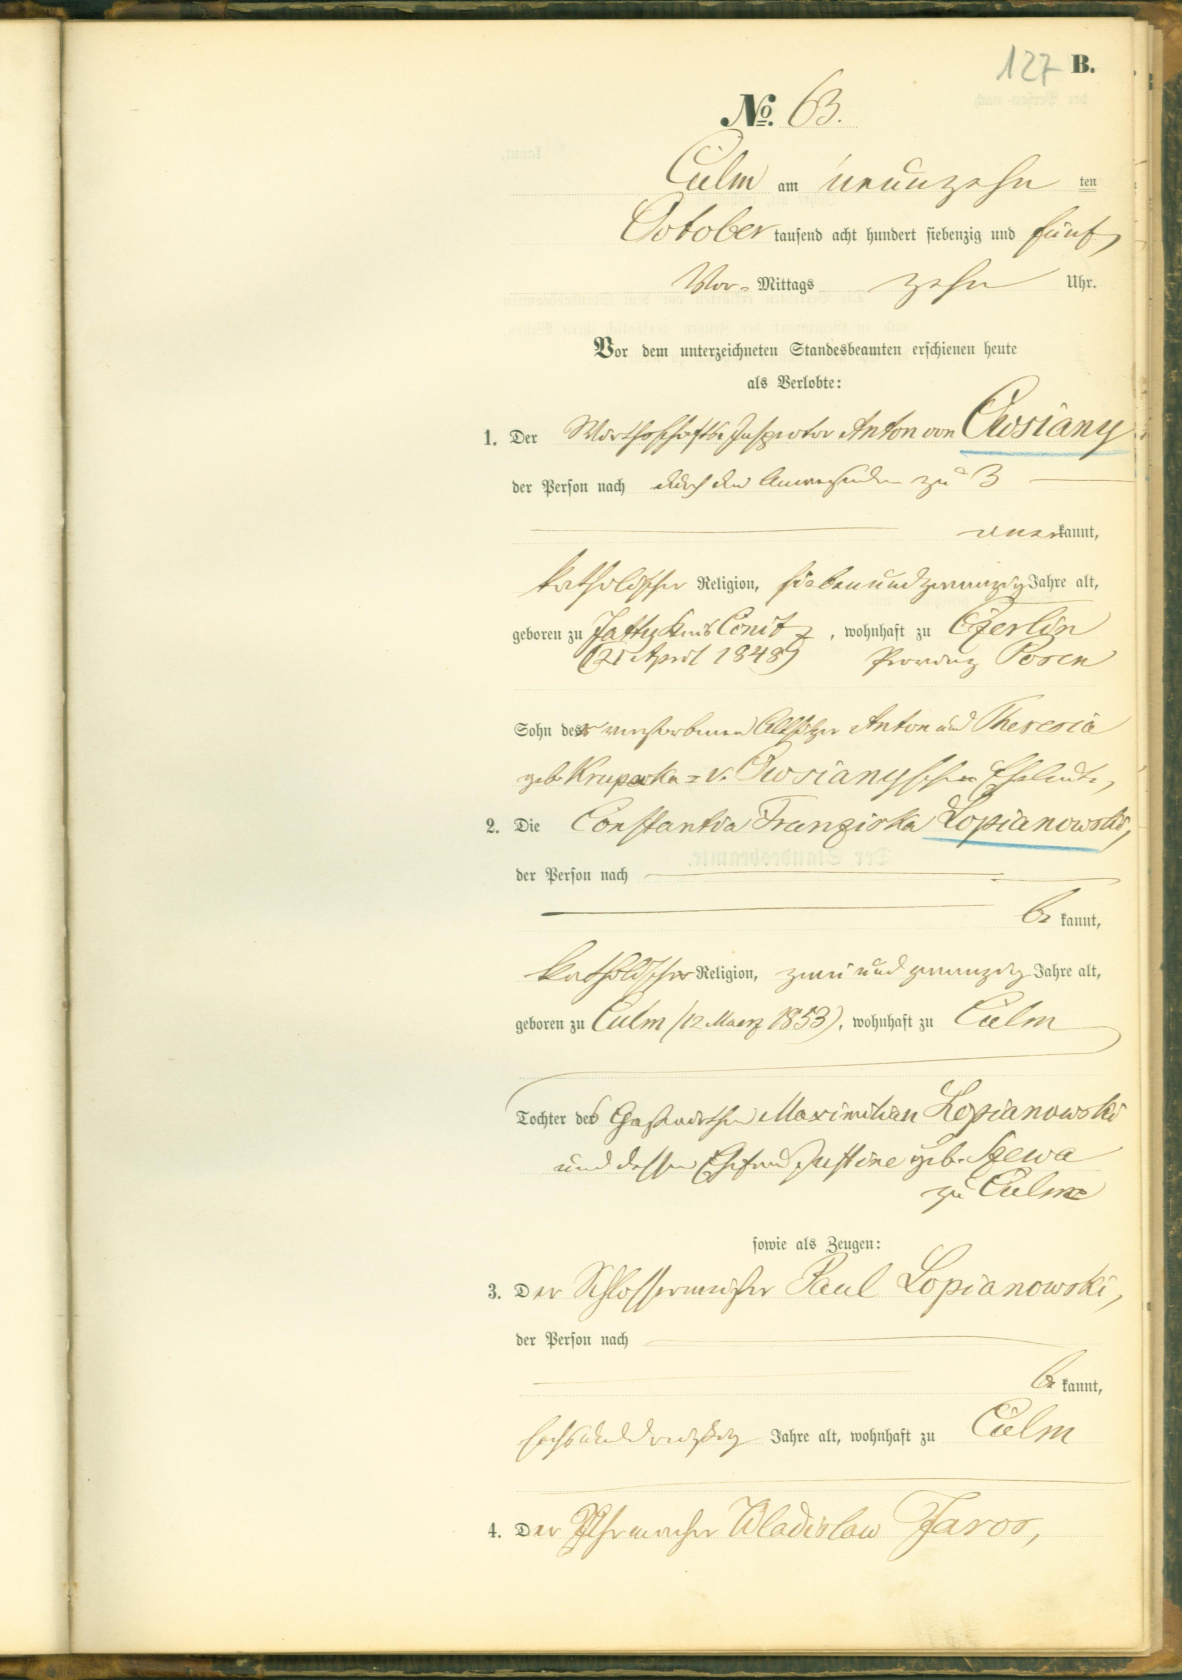 127 B.
No. 63.
Culm am neunzehn ten
October tausend acht hundert siebenzig und fünf,
Vor-Mittags zehn Uhr.
Vor dem unterzeichneten Standesbeamten erschienen heute
als Verlobte:
1. Der Wirthschafts Inspector Anton von Owsiany
der Person nach durch den Anwesenden zu 3
anerkannt,
katholischer Religion, siebenundzwanzig Jahre alt,
geboren zu Kreis Conitz, wohnhaft zu Czerlin
(21 April 1848) Provinz Posen
Sohn der verstorbenen Altsitzer Anton und Theresia
geb. v. Owsianyschen Eheleute,
2. Die Constantia Franziska Lopianowski,
der Person nach
be kannt,
katholischer Religion, zwei und zwanzig Jahre alt,
geboren zu Culm (12 Maerz 1853), wohnhaft zu Culm
Tochter des Gastwirthen Maximilian Lopianowski
und dessen Ehefrau Justine geb. Szewa
zu Culm
sowie als Zeugen:
3. Der Schlossermeister Paul Lopianowski,
der Person nach
be kannt,
sechsunddreißig Jahre alt, wohnhaft zu Culm
4. Der Uhrmacher Wladislaw Jaros,